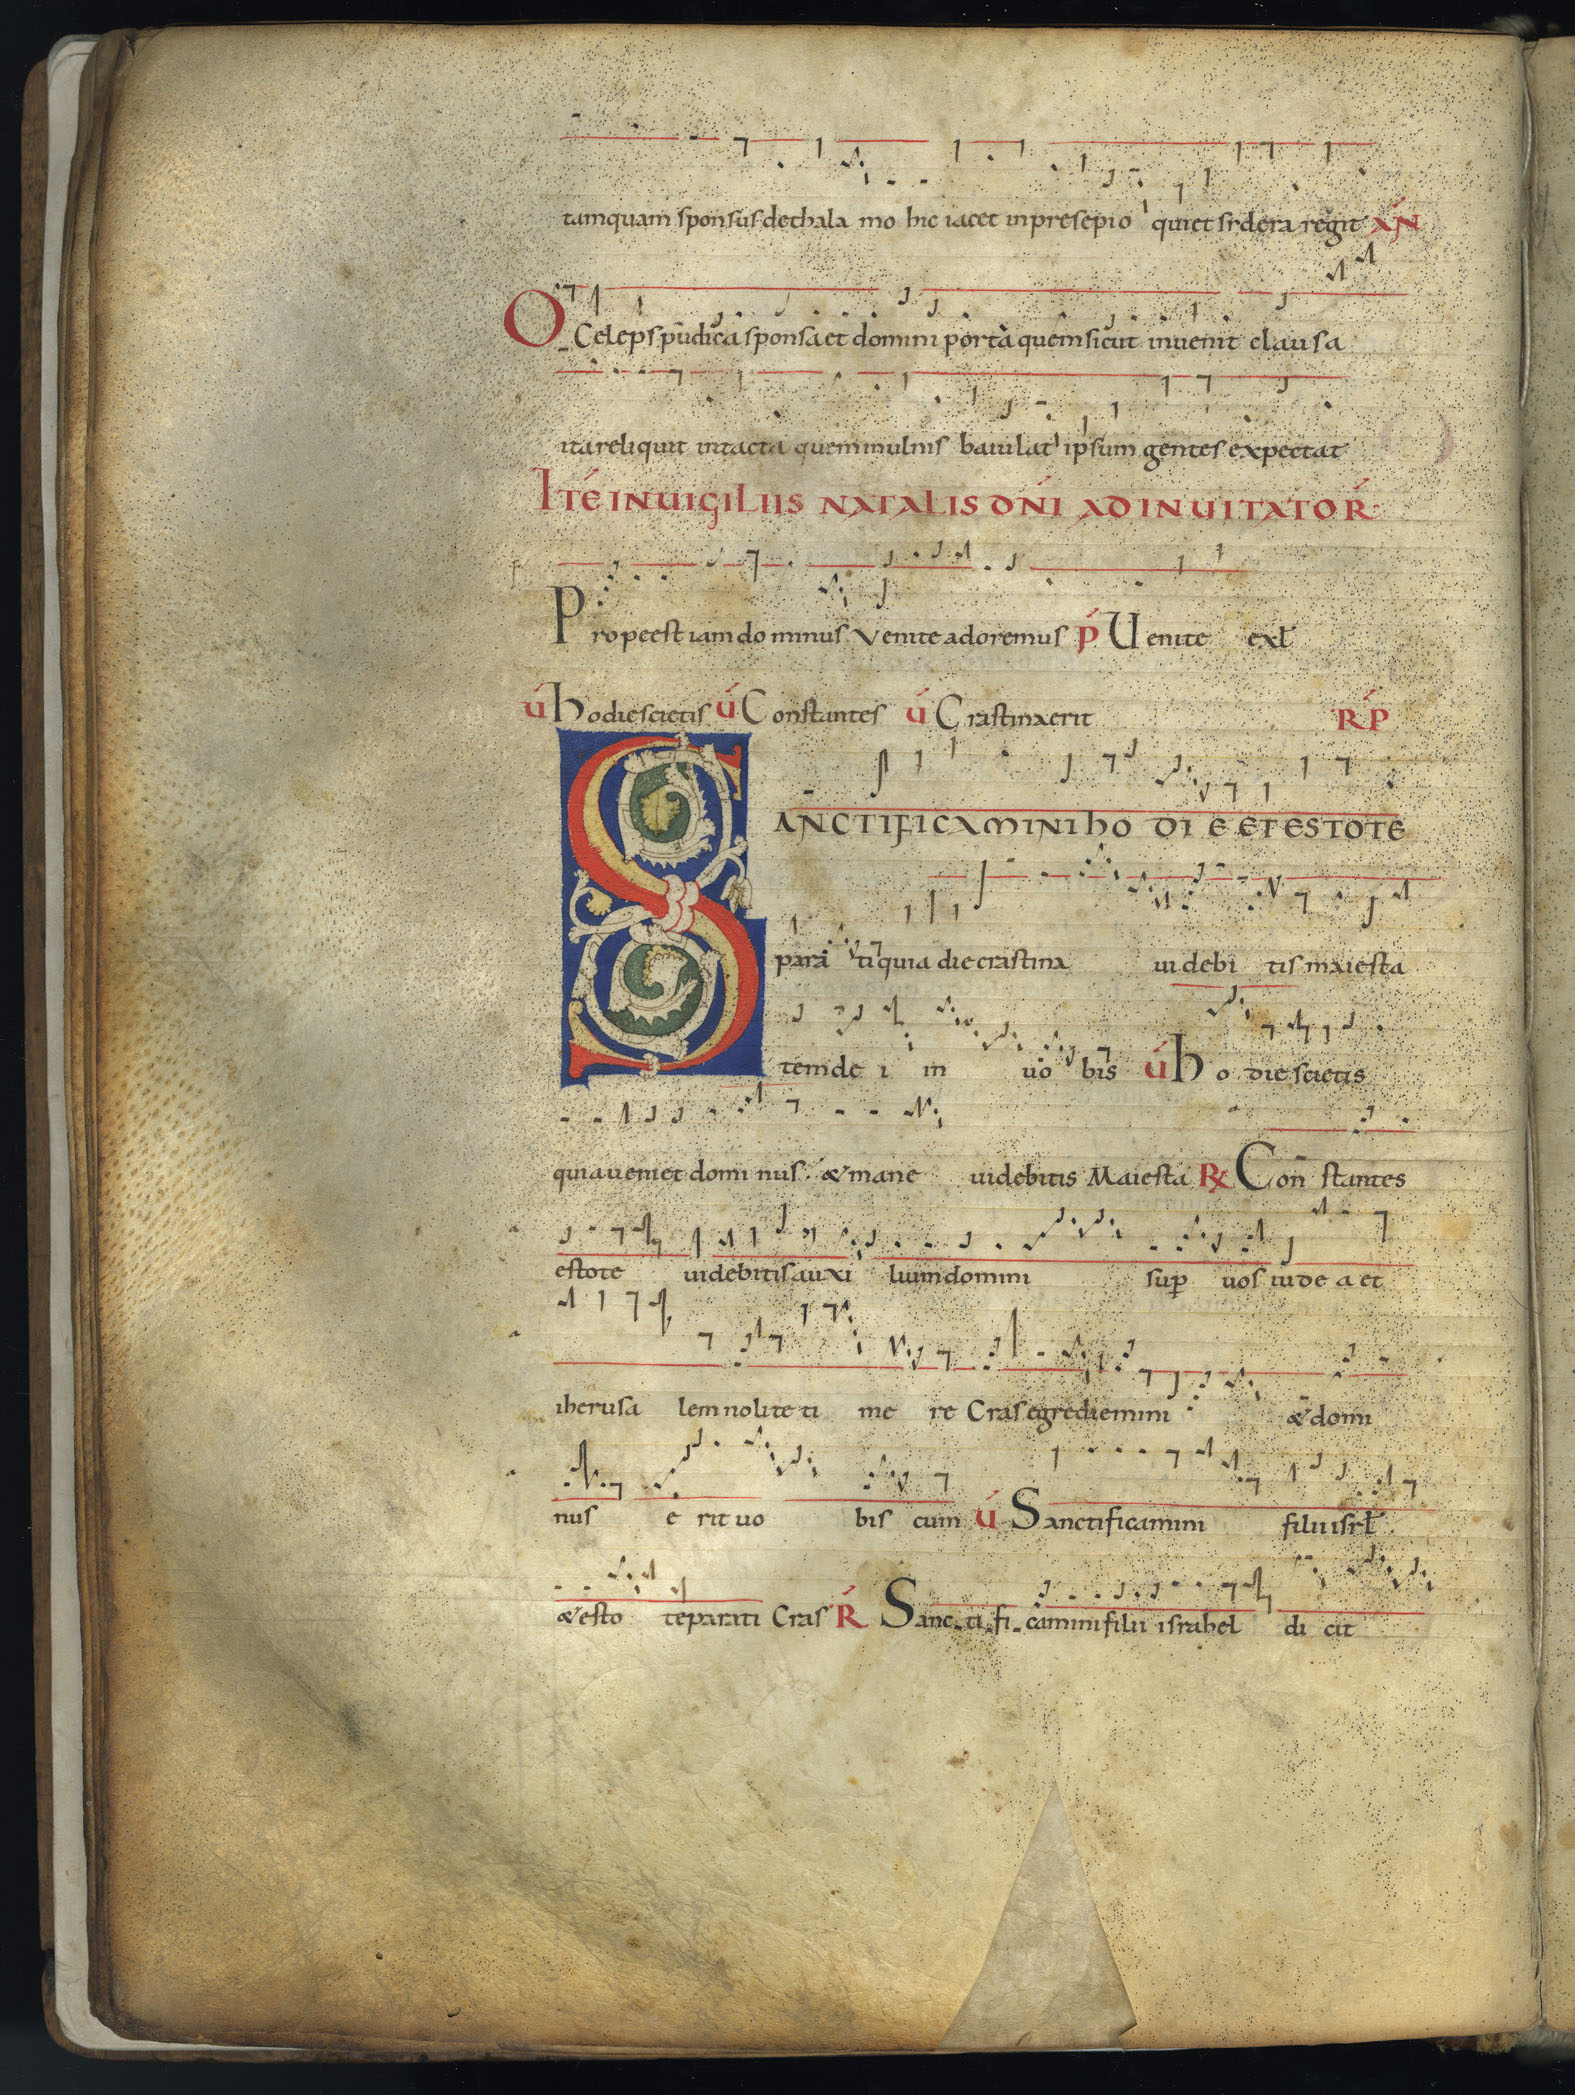 tamquam sponsus de thala mo hic iacet in presepio qui et sydera regit AŃ
O Celeps pudica sponsa et domini porta quem sicut inuenit clausa
ita reliquit intacta quem in ulnis baiulat ipsum gentes expectat
ITE IN UIGILIIS NATALIS DNI AD INUITATOR
Prope est iam do minus Venite adoremus P Uenite exl
U hodie scietis U Constantes U Crastina erit RP
SANCTIFICAMINI HO DI E ET ESTOTE
para ti quia die crastina uidebi tis maiesta
tem de i in uo bis U ho die scietis
quia ueniet domi nus & mane uidebitis Maiesta R Con stantes
estote uidebitis auxi lium domini sup uos iude a et
iherusa lem nolite ti me re Cras egrediemini & domi
nus e rit uo bis cum U Sanctificamini filii isrl
& esto te parati Cras R Sanc ti fi camini filii israhel di cit